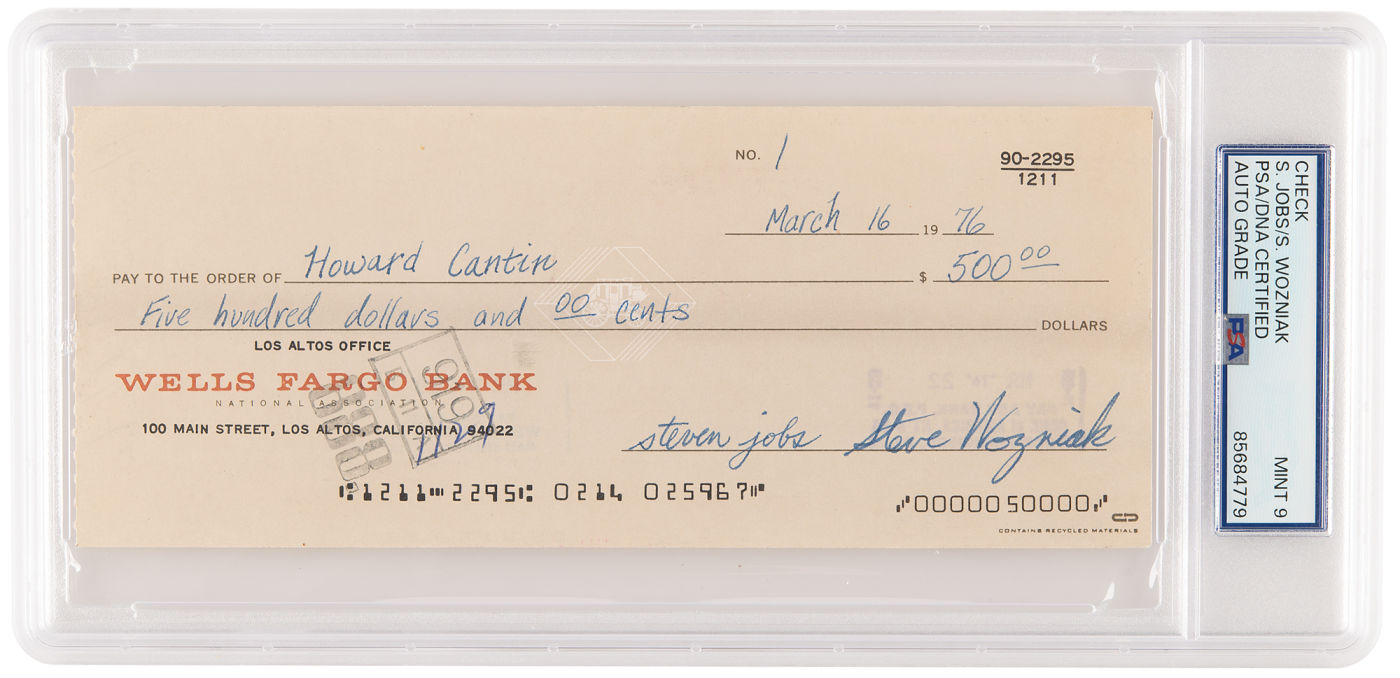 NO. 1
90-2295
1211
March 16 19 76
PAY TO THE ORDER OF Howard Cantin $ 500 00
Five hundred dollars and 00 cents DOLLARS
LOS ALTOS OFFICE
WELLS FARGO BANK
NATIONAL ASSOCIATION
100 MAIN STREET, LOS ALTOS, CALIFORNIA 94022
steven jobs Steve Wozniak
919
⑆1211⑉2295⑆ 0214 025967⑈
⑇0000050000⑇
CONTAINS RECYCLED MATERIALS
CHECK
S. JOBS/S. WOZNIAK
PSA/DNA CERTIFIED
AUTO GRADE
MINT 9
85684779
PSA